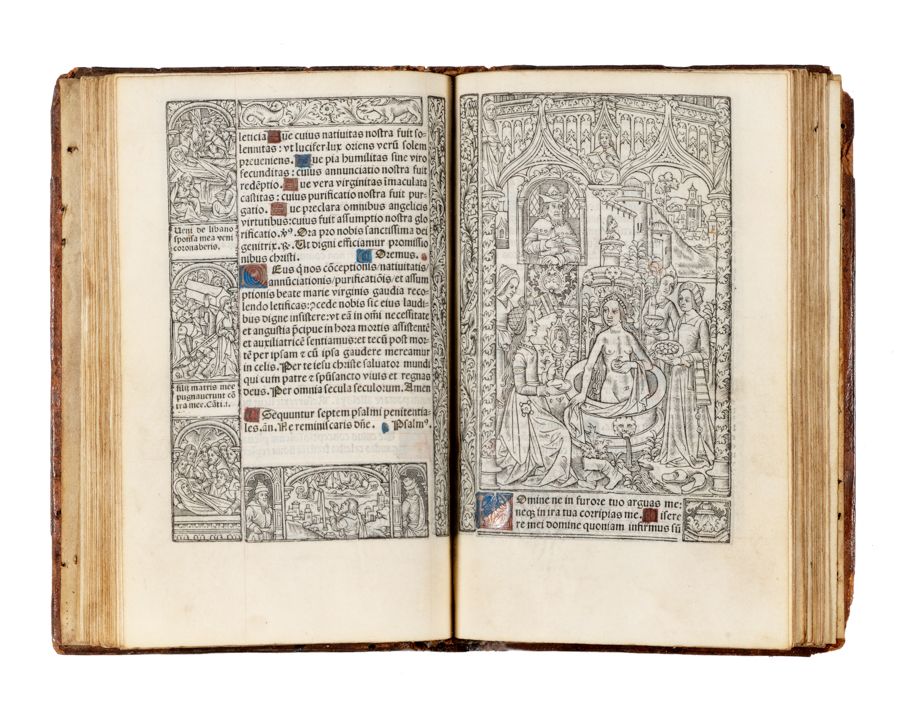 leticia. Aue cuius natiuitas nostra fuit so-
lennitas: vt lucifer lux oriens verū solem
preueniens. Aue pia humilitas sine viro
fecunditas: cuius annunciatio nostra fuit
redēptio. Aue vera virginitas īmaculata
castitas: cuius purificatio nostra fuit pur-
gatio. Aue preclara omnibus angelicis
virtutibus: cuius fuit assumptio nostra glo
rificatio. ℣. Ora pro nobis sanctissima dei
genitrix. ℟. Ut digni efficiamur promissio
nibus christi. Oremus.
Deus q nos cōceptionis/natiuitatis/
annūciationis/purificatiōis/et assum
ptionis beate marie virginis gaudia reco-
lendo letificas: pcede nobis sic eius laudi-
bus digne insistere: vt eā in omī necessitate
et angustia pcipue in hora mortis assistentē
et auxiliatricē sentiamus: et tecū post mor-
tē per ipsam et cū ipsa gaudere mereamur
in celis. Per te iesu christe saluator mundi
qui cum patre et spūsancto viuis et regnas
deus. Per omnia secula seculorum. Amen
Sequuntur septem psalmi penitentia-
les. añ. Ne reminiscaris dñe. Psalmꝰ.
Ueni de libano
sponsa mea veni
coronaberis.
filij matris mee
pugnauerunt cō
tra mee. Cāti. i.
Domine ne in furore tuo arguas me:
neqꝫ in ira tua corripias me. Misere
re mei domine quoniam infirmus sū